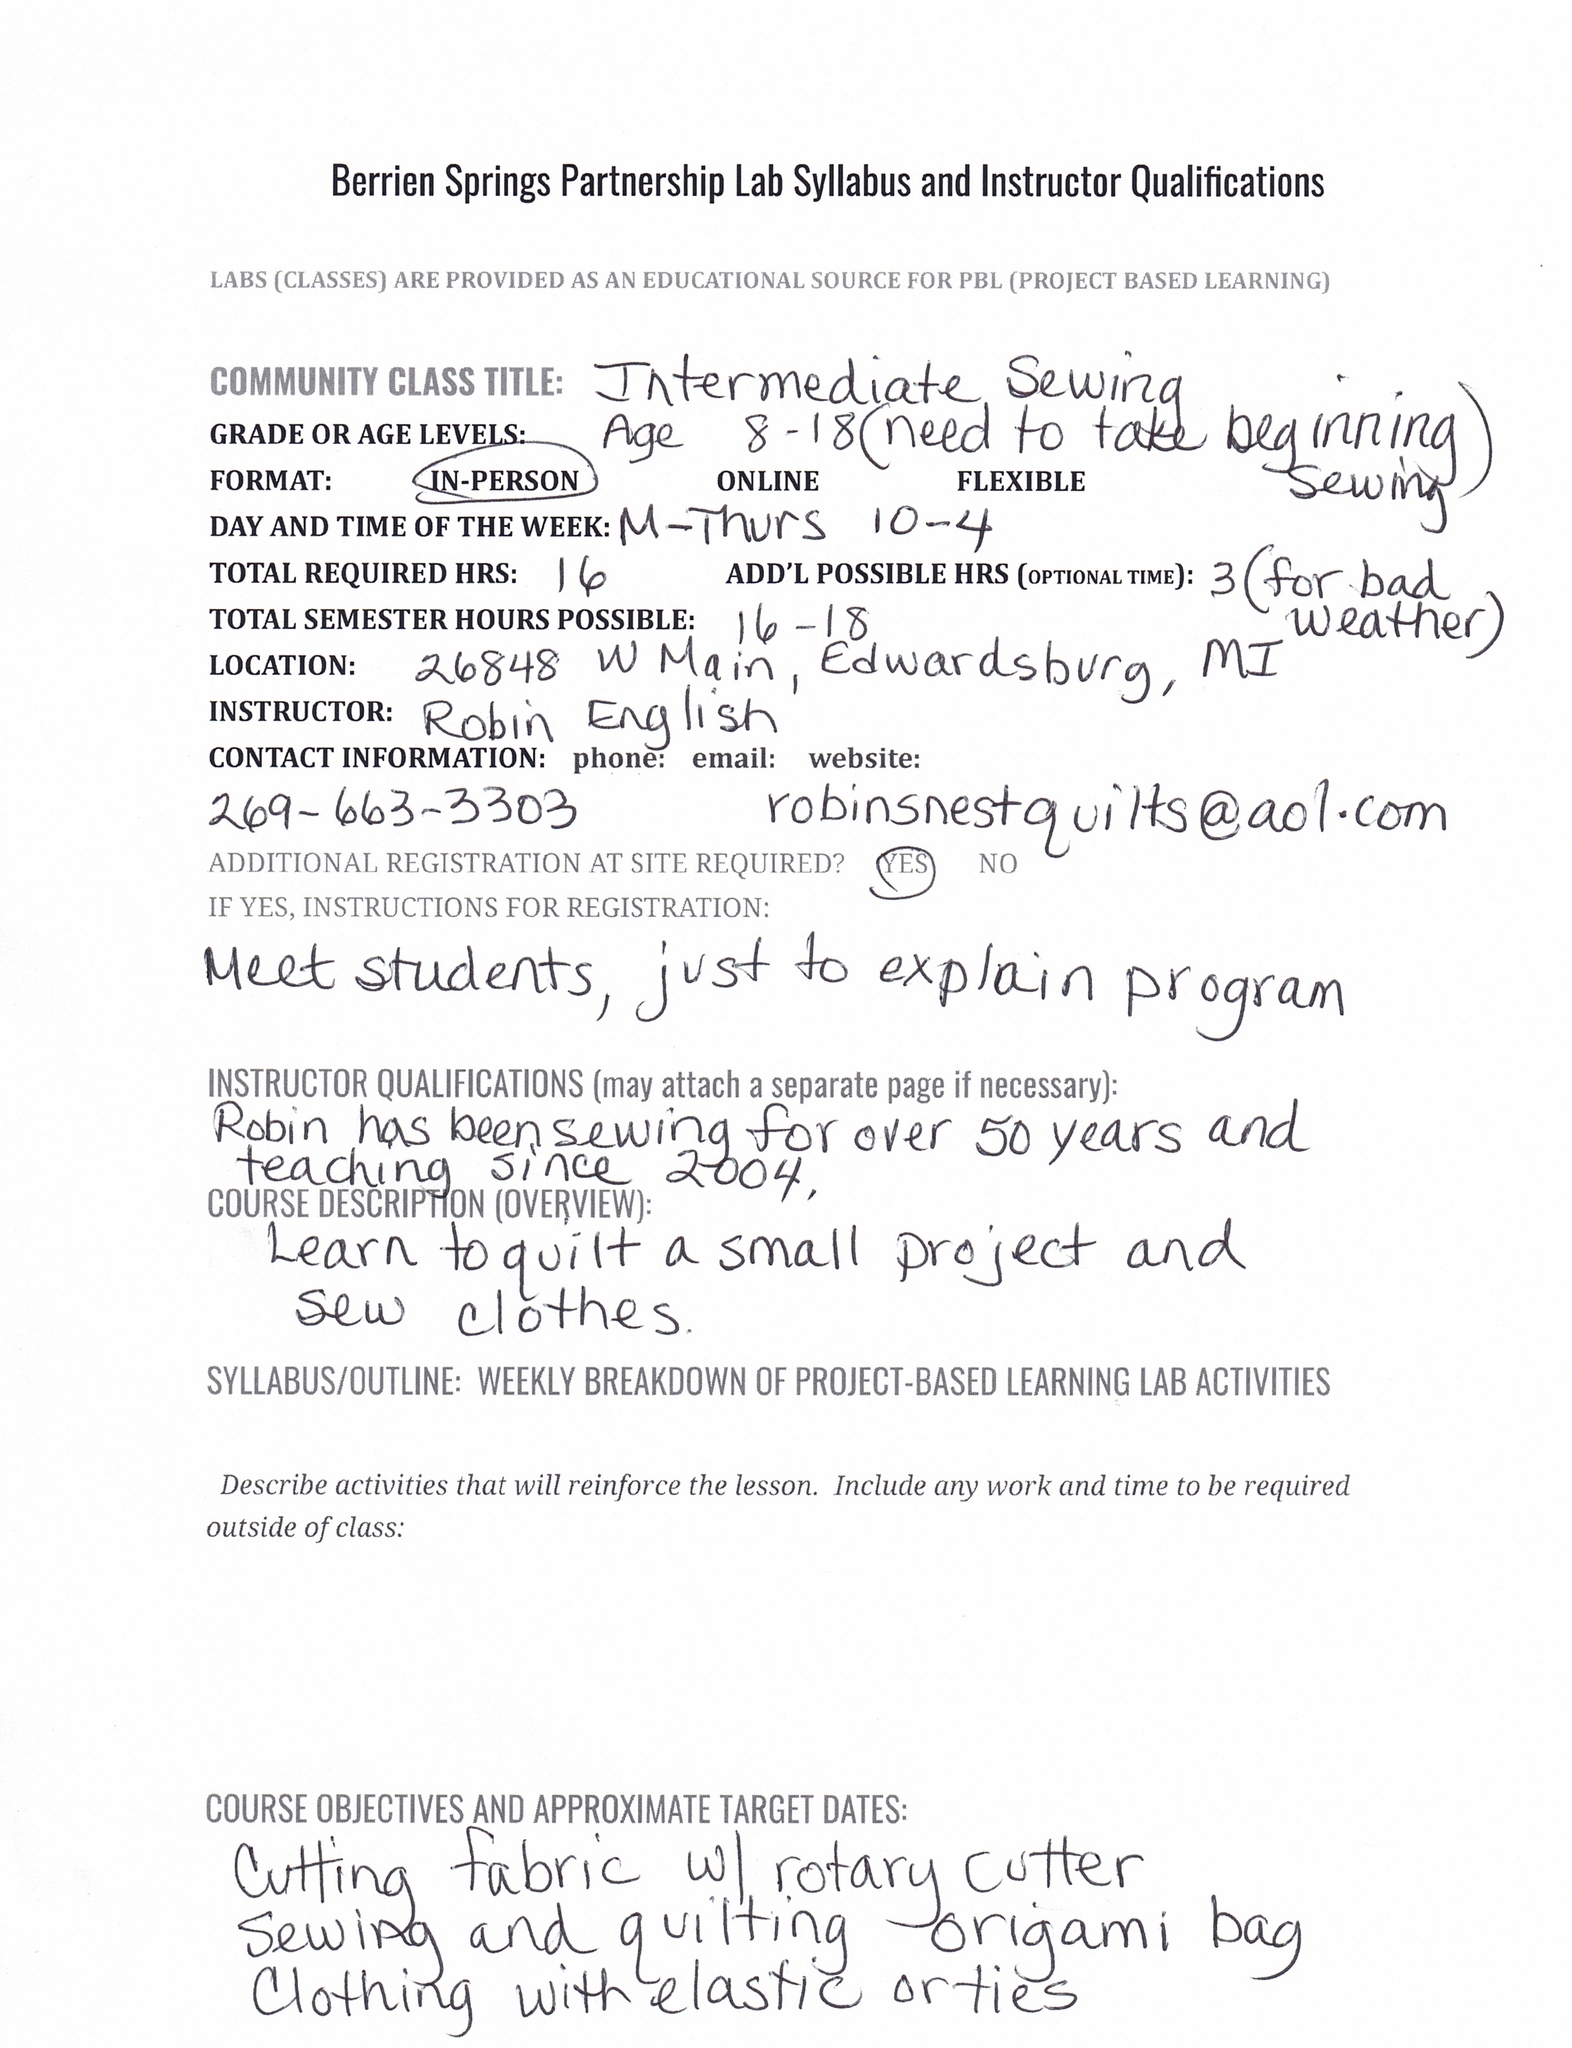 Berrien Springs Partnership Lab Syllabus and Instructor Qualifications
LABS (CLASSES) ARE PROVIDED AS AN EDUCATIONAL SOURCE FOR PBL (PROJECT BASED LEARNING)
COMMUNITY CLASS TITLE: Intermediate Sewing
GRADE OR AGE LEVELS: Age 8-18 (need to take beginning
sewing)
FORMAT: IN-PERSON ONLINE FLEXIBLE
DAY AND TIME OF THE WEEK: M-Thurs 10-4
TOTAL REQUIRED HRS: 16 ADD'L POSSIBLE HRS (OPTIONAL TIME): 3 (for bad
weather)
TOTAL SEMESTER HOURS POSSIBLE: 16-18
LOCATION: 26848 W Main, Edwardsburg, MI
INSTRUCTOR: Robin English
CONTACT INFORMATION: phone: email: website:
269-663-3303 robinsnestquilts@aol.com
ADDITIONAL REGISTRATION AT SITE REQUIRED? YES NO
IF YES, INSTRUCTIONS FOR REGISTRATION:
Meet students, just to explain program
INSTRUCTOR QUALIFICATIONS (may attach a separate page if necessary):
Robin has been sewing for over 50 years and
teaching since 2004.
COURSE DESCRIPTION (OVERVIEW):
Learn to quilt a small project and
sew clothes.
SYLLABUS/OUTLINE: WEEKLY BREAKDOWN OF PROJECT-BASED LEARNING LAB ACTIVITIES
Describe activities that will reinforce the lesson. Include any work and time to be required
outside of class:
COURSE OBJECTIVES AND APPROXIMATE TARGET DATES:
Cutting fabric w/ rotary cutter
Sewing and quilting - origami bag
Clothing with elastic or ties